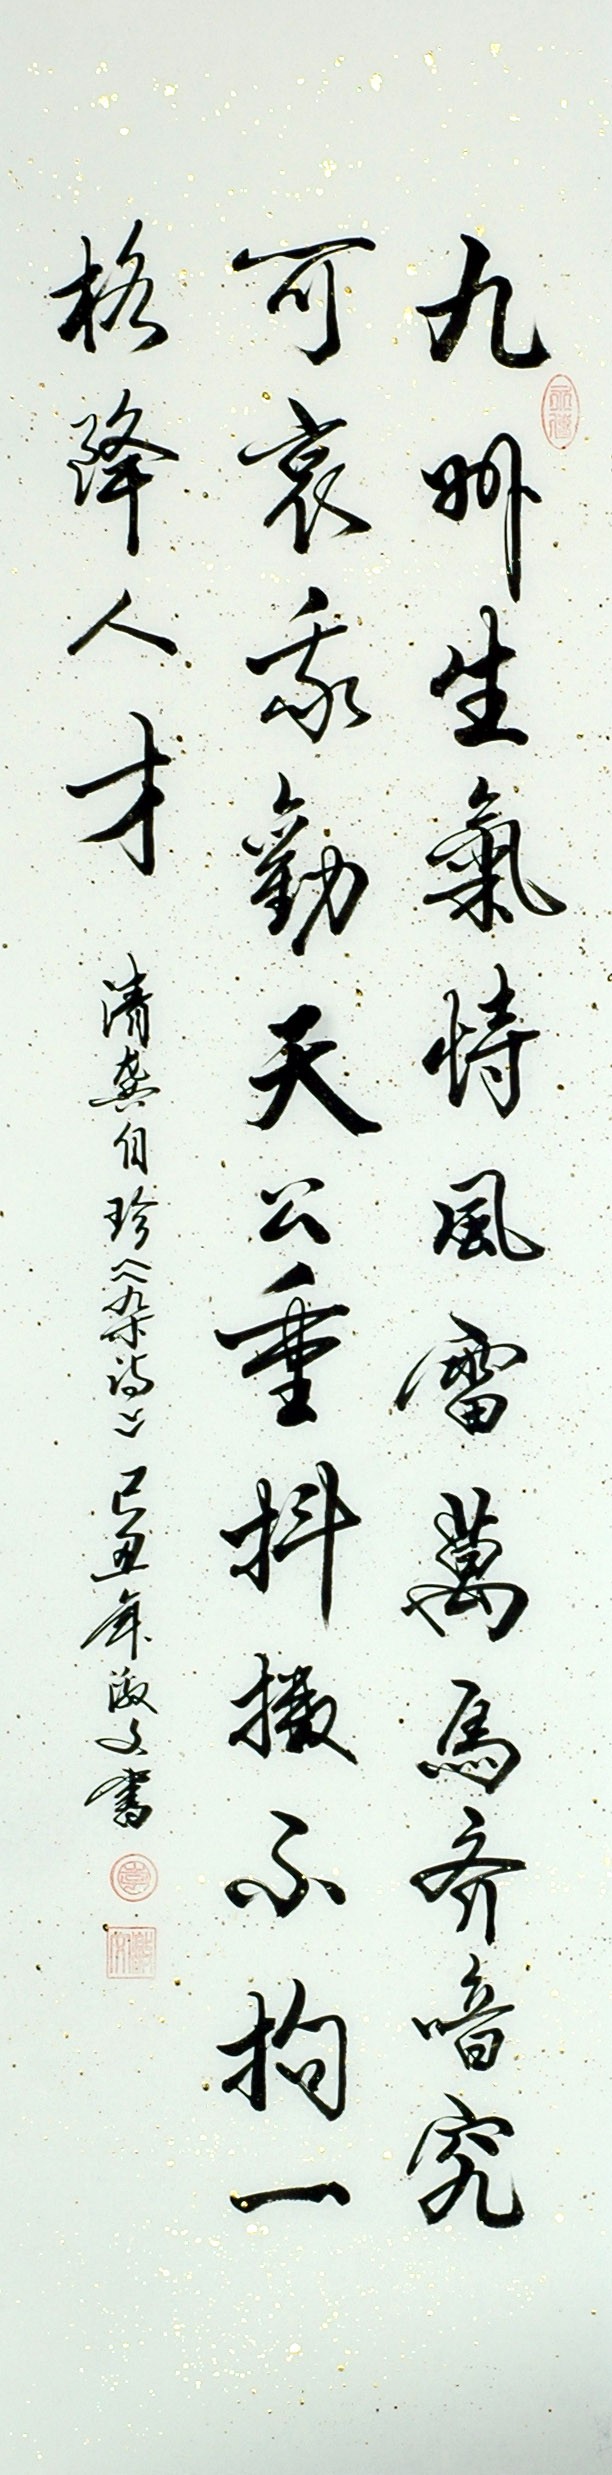 九州生氣恃風雷萬馬齐喑究
可哀我勸天公重抖擻不拘一
格降人才
清龚自珍《杂诗》己丑年淑文書